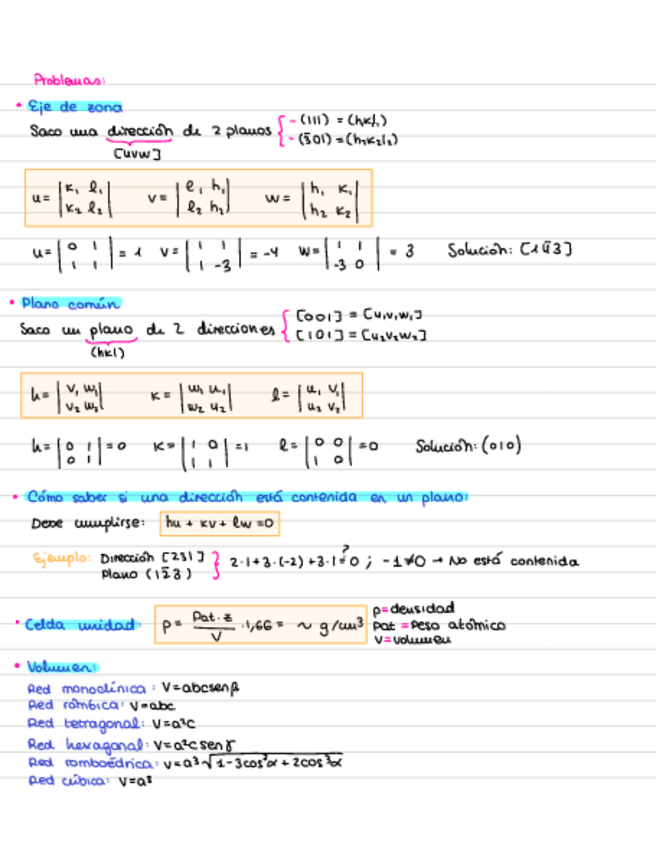 Problemas:
• Eje de zona
Saco una dirección de 2 planos { - (111) = (h₁k₁l₁)
- (3̄01) = (h₂k₂l₂)
[uvw]
u = |k₁ l₁; k₂ l₂| v = |l₁ h₁; l₂ h₂| w = |h₁ k₁; h₂ k₂|
u = |0 1; 1 1| = 1 v = |1 1; 1 -3| = -4 w = |1 1; -3 0| = 3 Solución: [14̄3]
• Plano común
Saco un plano de 2 direcciones { [001] = [u₁v₁w₁]
[101] = [u₂v₂w₂]
(hkl)
h = |v₁ w₁; v₂ w₂| k = |w₁ u₁; w₂ u₂| l = |u₁ v₁; u₂ v₂|
h = |0 1; 0 1| = 0 k = |1 0; 1 1| = 1 l = |0 0; 1 0| = 0 Solución: (010)
• Cómo saber si una dirección está contenida en un plano:
Debe cumplirse: hu + kv + lw = 0
Ejemplo: Dirección [231] } 2·1+3·(-2)+3·1 ≟ 0 ; -1≠0 → No está contenida
Plano (12̄3)
• Celda unidad: ρ = Pat·z / V · 1,66 = ~ g/cm³ ρ = densidad
Pat = Peso atómico
V = volumen
• Volumen:
Red monoclínica: V=abcsenβ
Red rómbica: V=abc
Red tetragonal: V=a²c
Red hexagonal: V=a²c senγ
Red romboédrica: V=a³√1-3cos²α+2cos³α
Red cúbica: V=a³